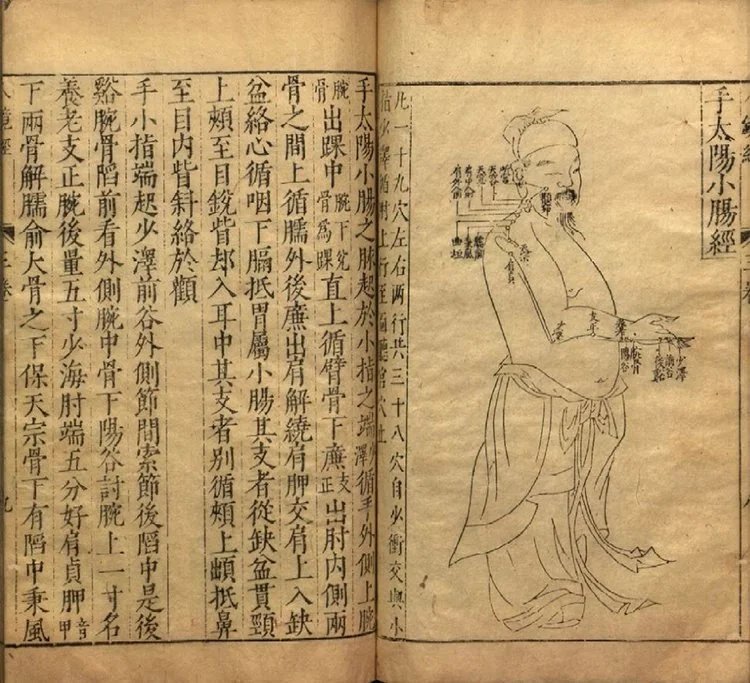 手太陽小腸經
少澤
前谷
後谿
腕骨
陽谷
養老
支正
凡一十九穴左右兩行共三十八穴自少衝交與小
指少澤循肘上行至面聽宮穴止
手太陽小腸之脉起於小指之端澤循手外側上腕
腕骨出踝中腕下兌骨為踝直上循臂骨下廉支正出肘內側兩
骨之間上循臑外後廉出肩解繞肩胛交肩上入缺
盆絡心循咽下膈抵胃屬小腸其支者從缺盆貫頸
上頰至目銳眥却入耳中其支者別循頰上䪼抵鼻
至目內眥斜絡於顴
手小指端起少澤前谷外側節間索節後陷中是後
谿腕骨陷前看外側腕中骨下陽谷討腕上一寸名
養老支正腕後量五寸少海肘端五分好肩貞胛音甲
下兩骨解臑俞大骨之下保天宗骨下有陷中秉風
鏡經
三卷
九